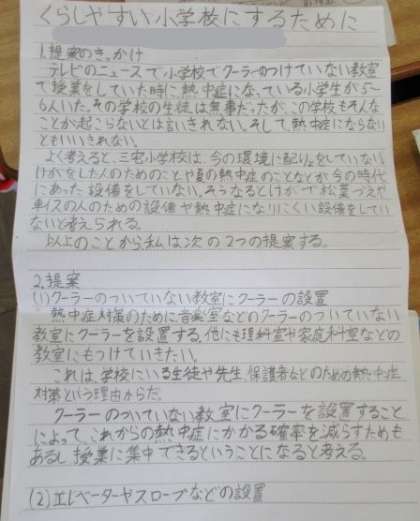 くらしやすい小学校にするために
1.提案のきっかけ
テレビのニュースで小学校でクーラーのつけていない教室
で授業をしていた時に熱中症になっている小学生が5〜
6人いた。その学校の生徒は無事だったが、この学校もそんな
ことが起こらないとは言いきれない。そして、熱中症にならない
ともいいきれない。
よく考えると、三宅小学校は、今の環境に配りょをしていない
けがをした人のためのことや夏の熱中症のことなどが今の時代
にあった設備をしていない。そうなるとけがで松葉づえや
車イスの人のための設備や熱中症になりにくい設備をしてい
ないと考えられる。
以上のことから、私は次の2つの提案する。
2.提案
(1)クーラーのついていない教室にクーラーの設置
熱中症対策のために音楽室などのクーラーのついていない
教室にクーラーを設置する。他にも理科室や家庭科室などの
教室にもつけていきたい。
これは、学校にいる生徒や先生、保護者などのための熱中症
対策という理由からだ。
クーラーのついていない教室にクーラーを設置すること
によって、これからの熱中症にかかる確率を減らすためも
あるし、授業に集中できるということになると考える。
(2)エレベーターやスロープなどの設置